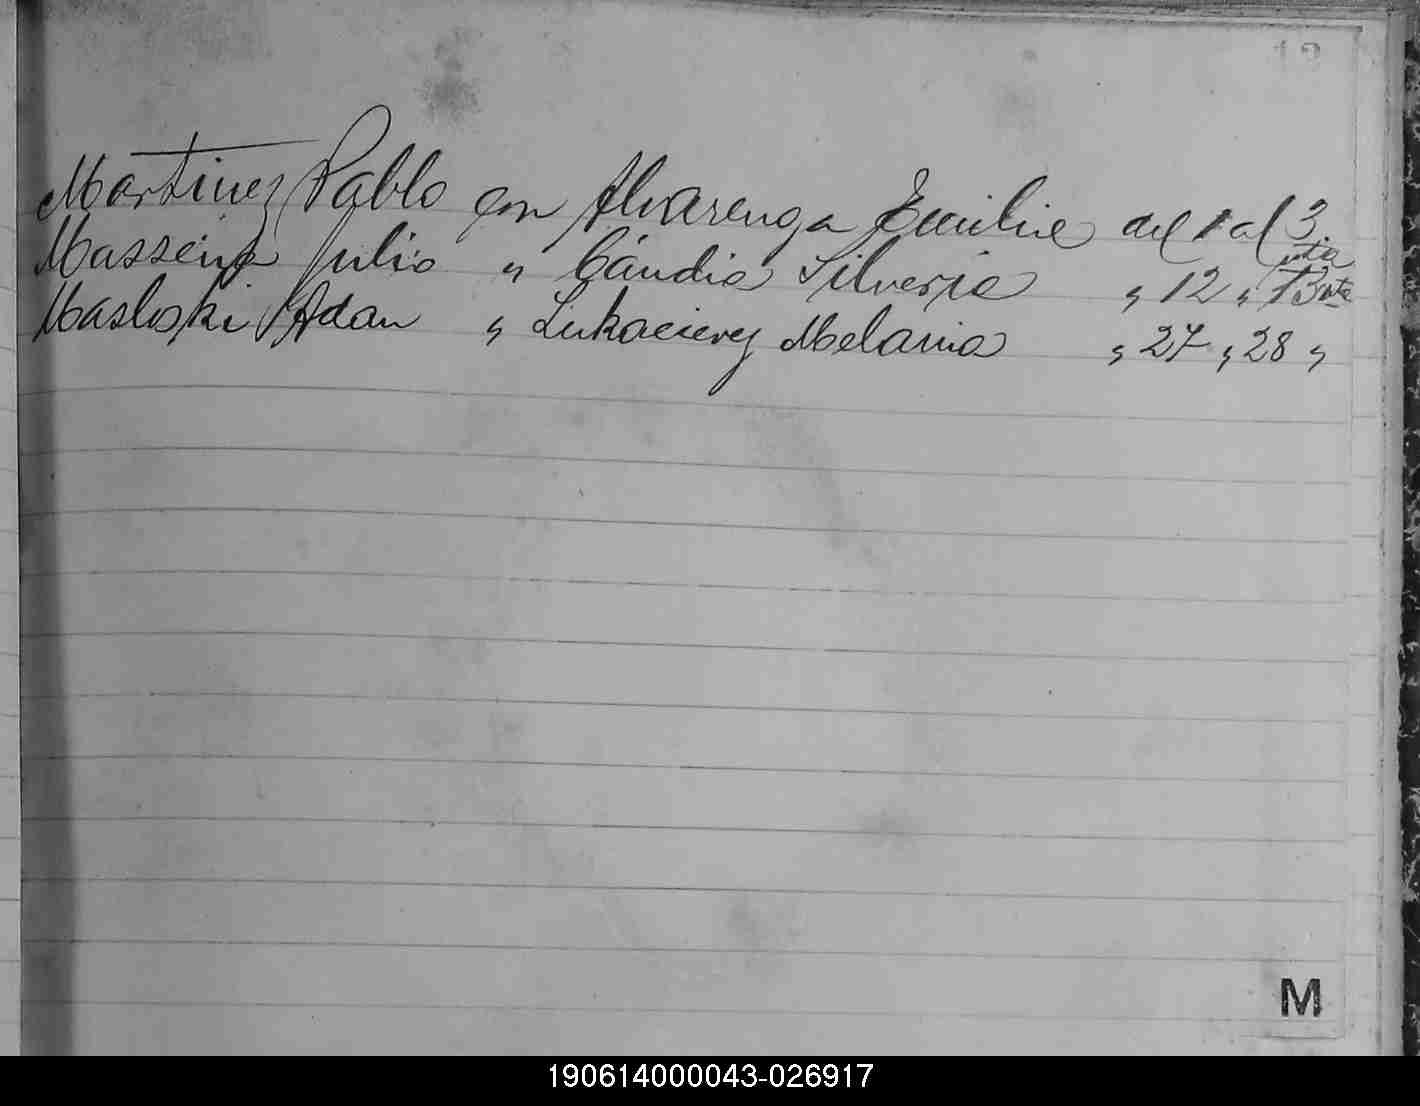 Martinez Pablo con Alvarenga Emilia del 1 al 3. vta
Masseira Julio " Cándia Silveria " 12 " 13 vta
Masloski Adan " Lukacievez Melania " 27 " 28 "
M
190614000043-026917